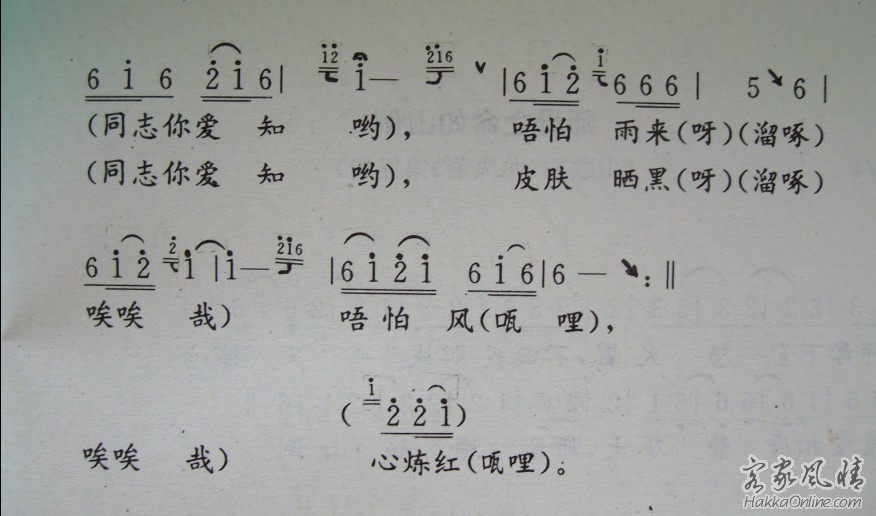 6 i 6 2̇ i 6 | i̇2̇ i — 2̇i̇6 ∨ | 6 i 2̇ i̇ 6 6 6 | 5 ↘ 6 |
(同志你爱 知 哟), 唔怕 雨来(呀)(溜啄)
(同志你爱 知 哟), 皮肤 晒黑(呀)(溜啄)
6 i 2̇ 2̇ i | i — 2̇i̇6 | 6 i 2̇ i 6 i 6 | 6 — ↘ :‖
唉唉 哉) 唔怕 风(呱 哩),
( i̇ 2̇ 2̇ i )
唉唉 哉) 心炼红(呱哩)。
客家风情
HakkaOnline.com